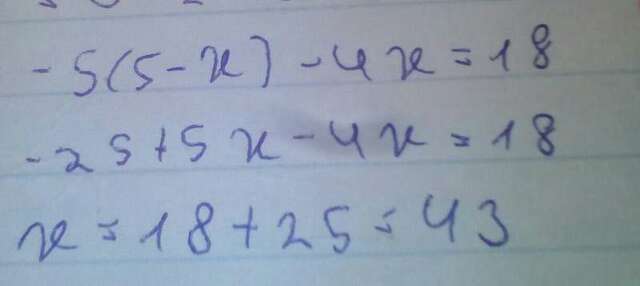 -5(5-x)-4x=18
-25+5x-4x=18
x=18+25=43